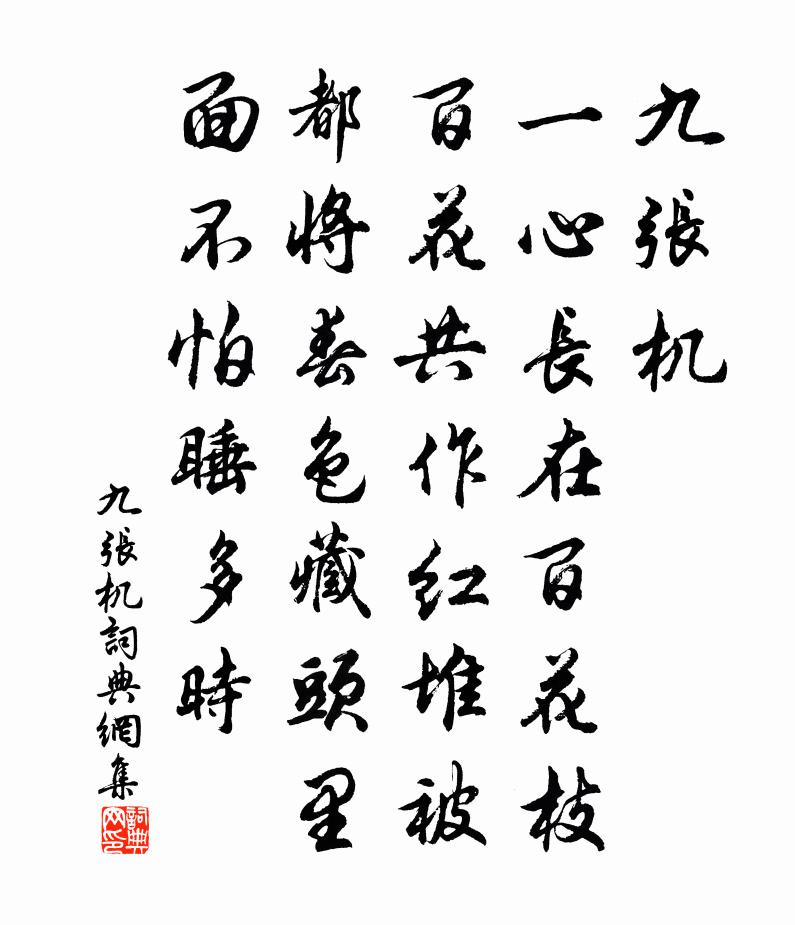 九張机
一心長在百花枝
百花共作红堆被
都將春色藏頭里
面不怕睡多時
九張机詞典網集
詞典网印